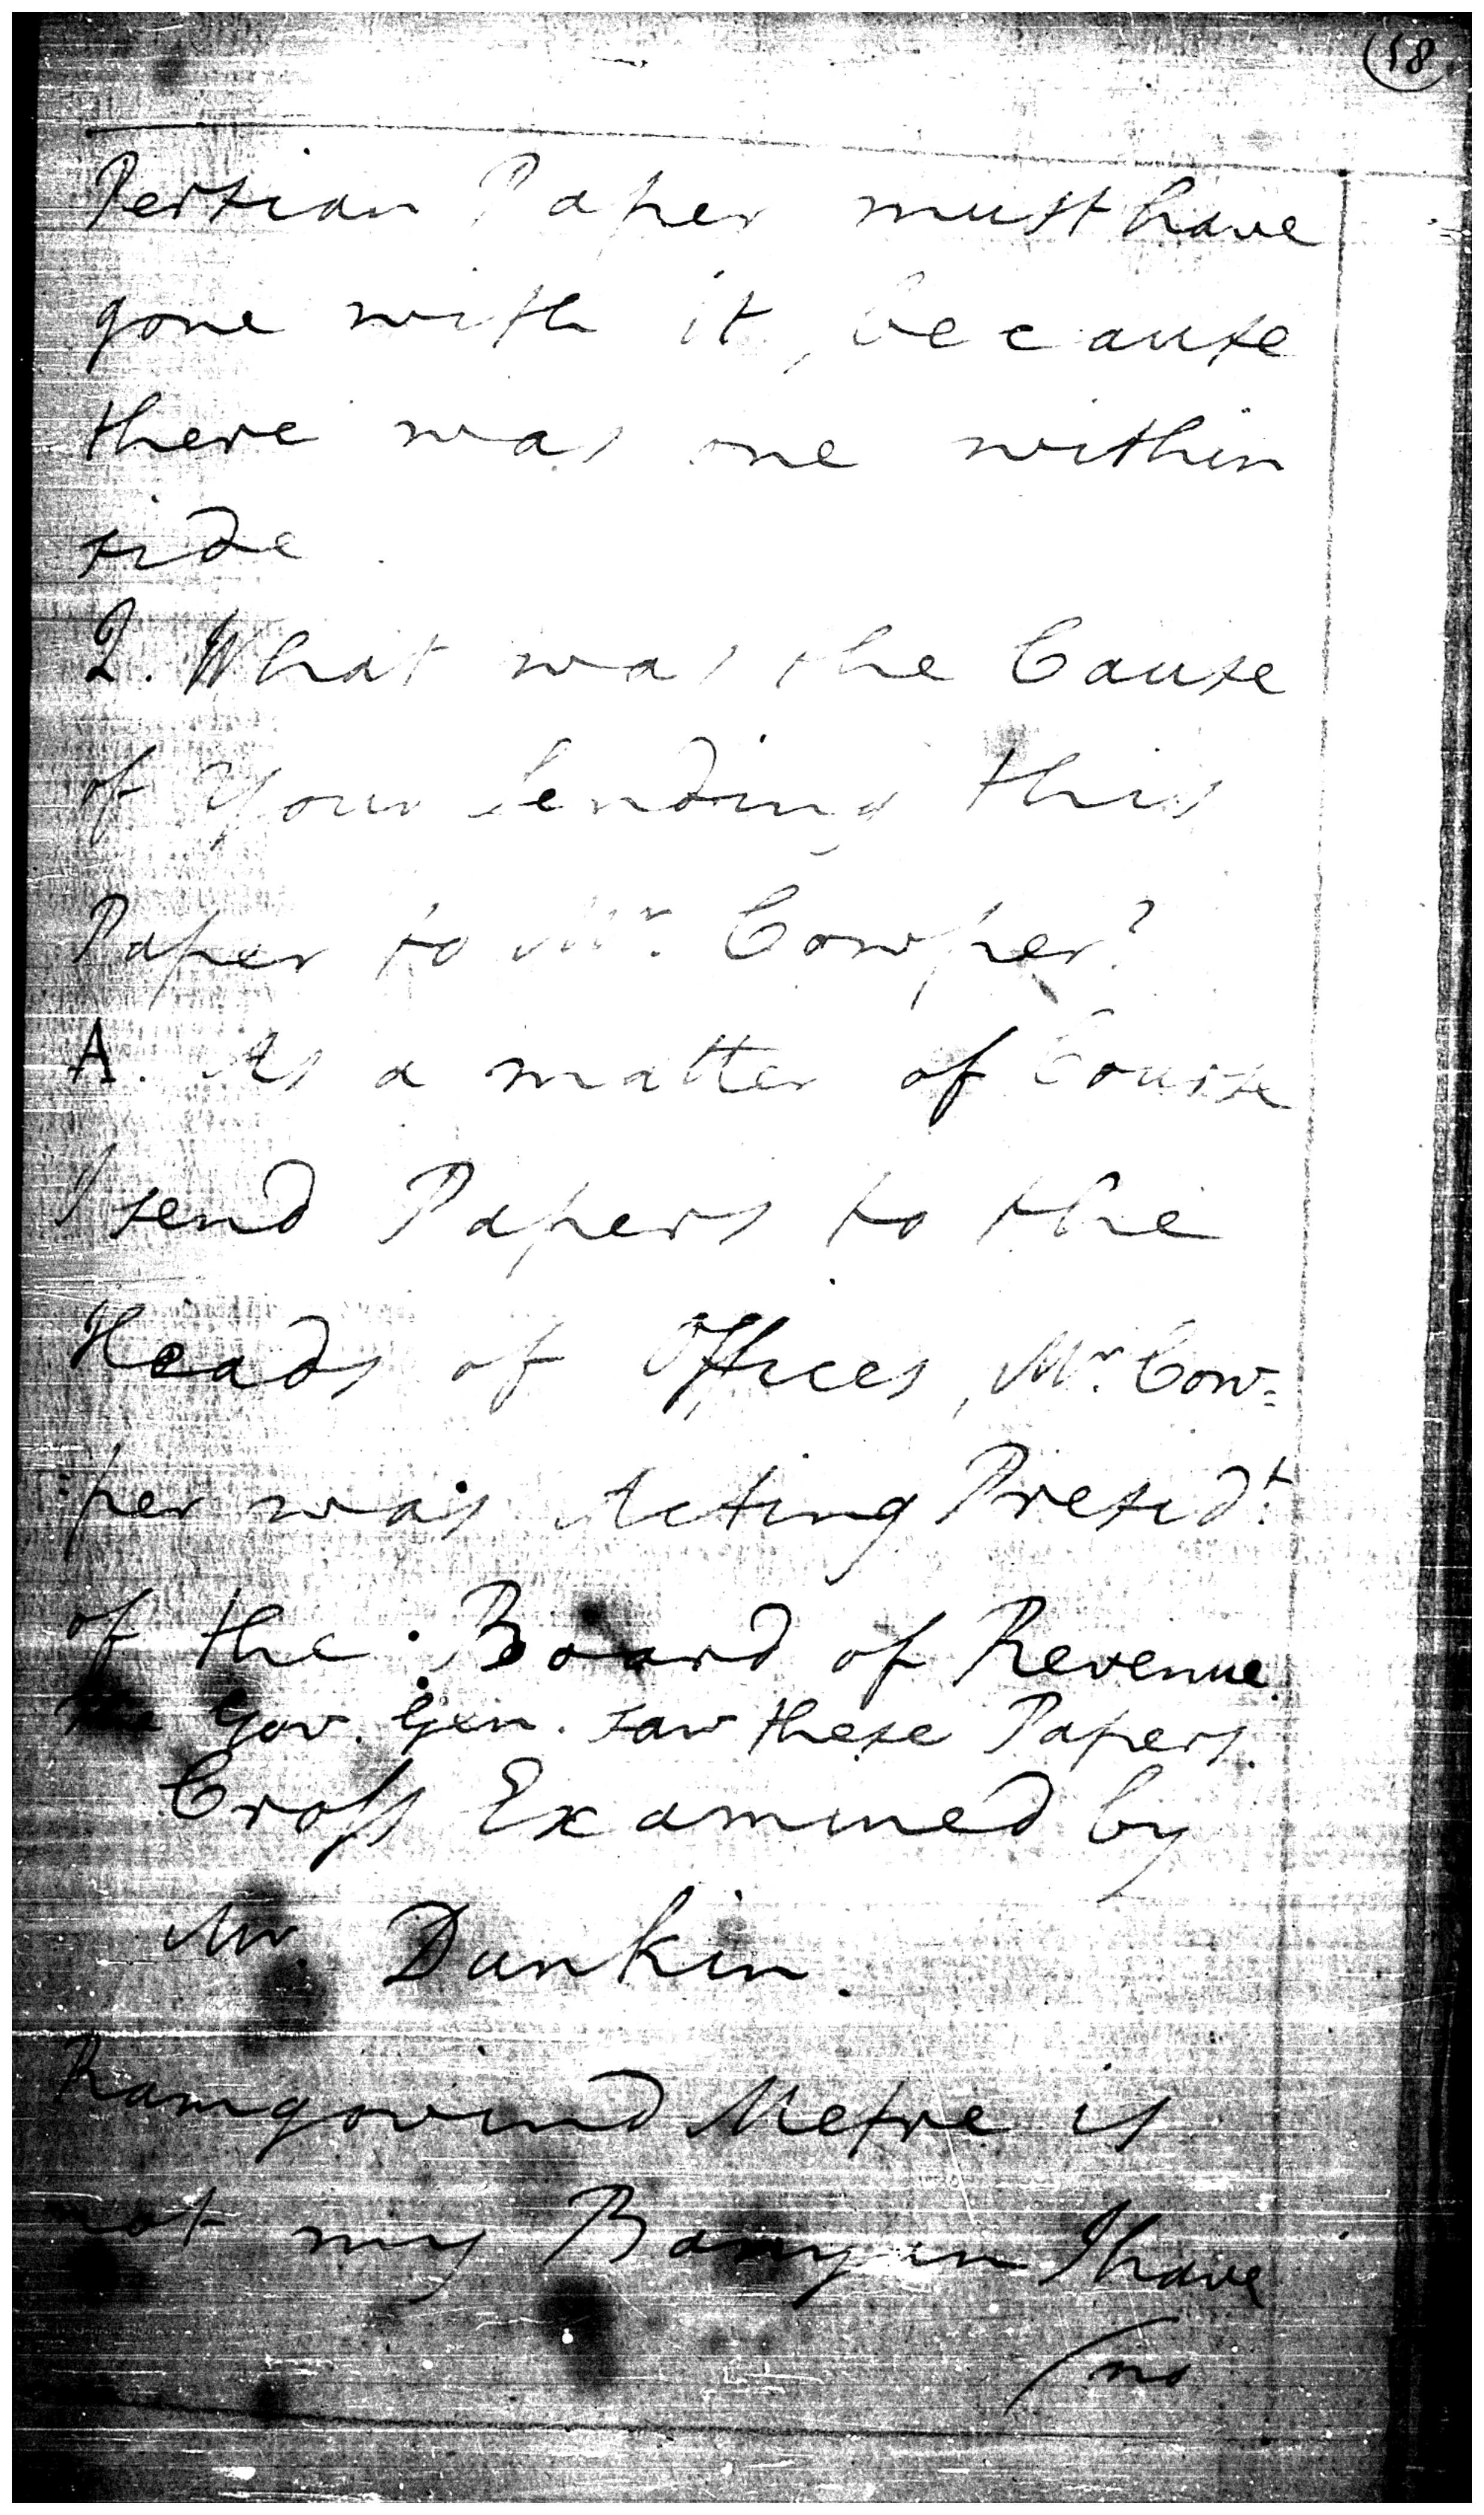 58
Persian Paper must have
gone with it, because
there was one within
side.
Q. What was the Cause
of Your sending this
Paper to Mr. Cowper?
A. As a matter of Course
I send Papers to the
Heads of Offices, Mr. Cow=
:per was Acting Presidt.
of the Board of Revenue.
The Gov. Gen. saw these Papers.
Cross Examined by
Mr. Dunkin.
Ramgovind Metre is
not my Banyan I have
(no